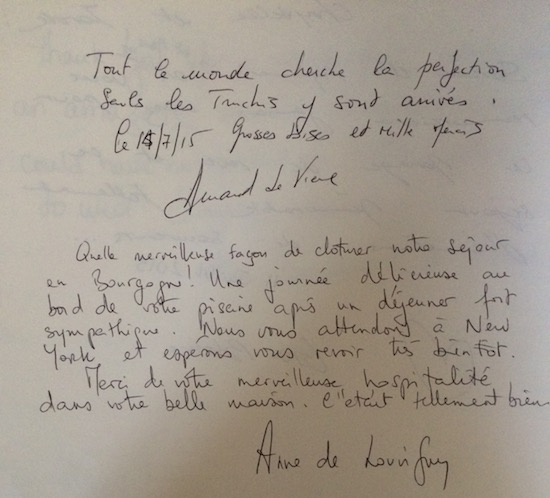 Tout le monde cherche la perfection
Seuls les Truchis y sont arrivés.
le 14/7/15 Grosses Bises et Mille Mercis
Armand Le
Quelle merveilleuse façon de cloturer notre séjour
en Bourgogne! Une journée délicieuse au
bord de votre piscine après un déjeuner fort
sympathique. Nous vous attendons à New
York et espérons vous revoir très bientôt.
Merci de votre merveilleuse hospitalité
dans votre belle maison. C'était tellement bien
Anne de Louvigny